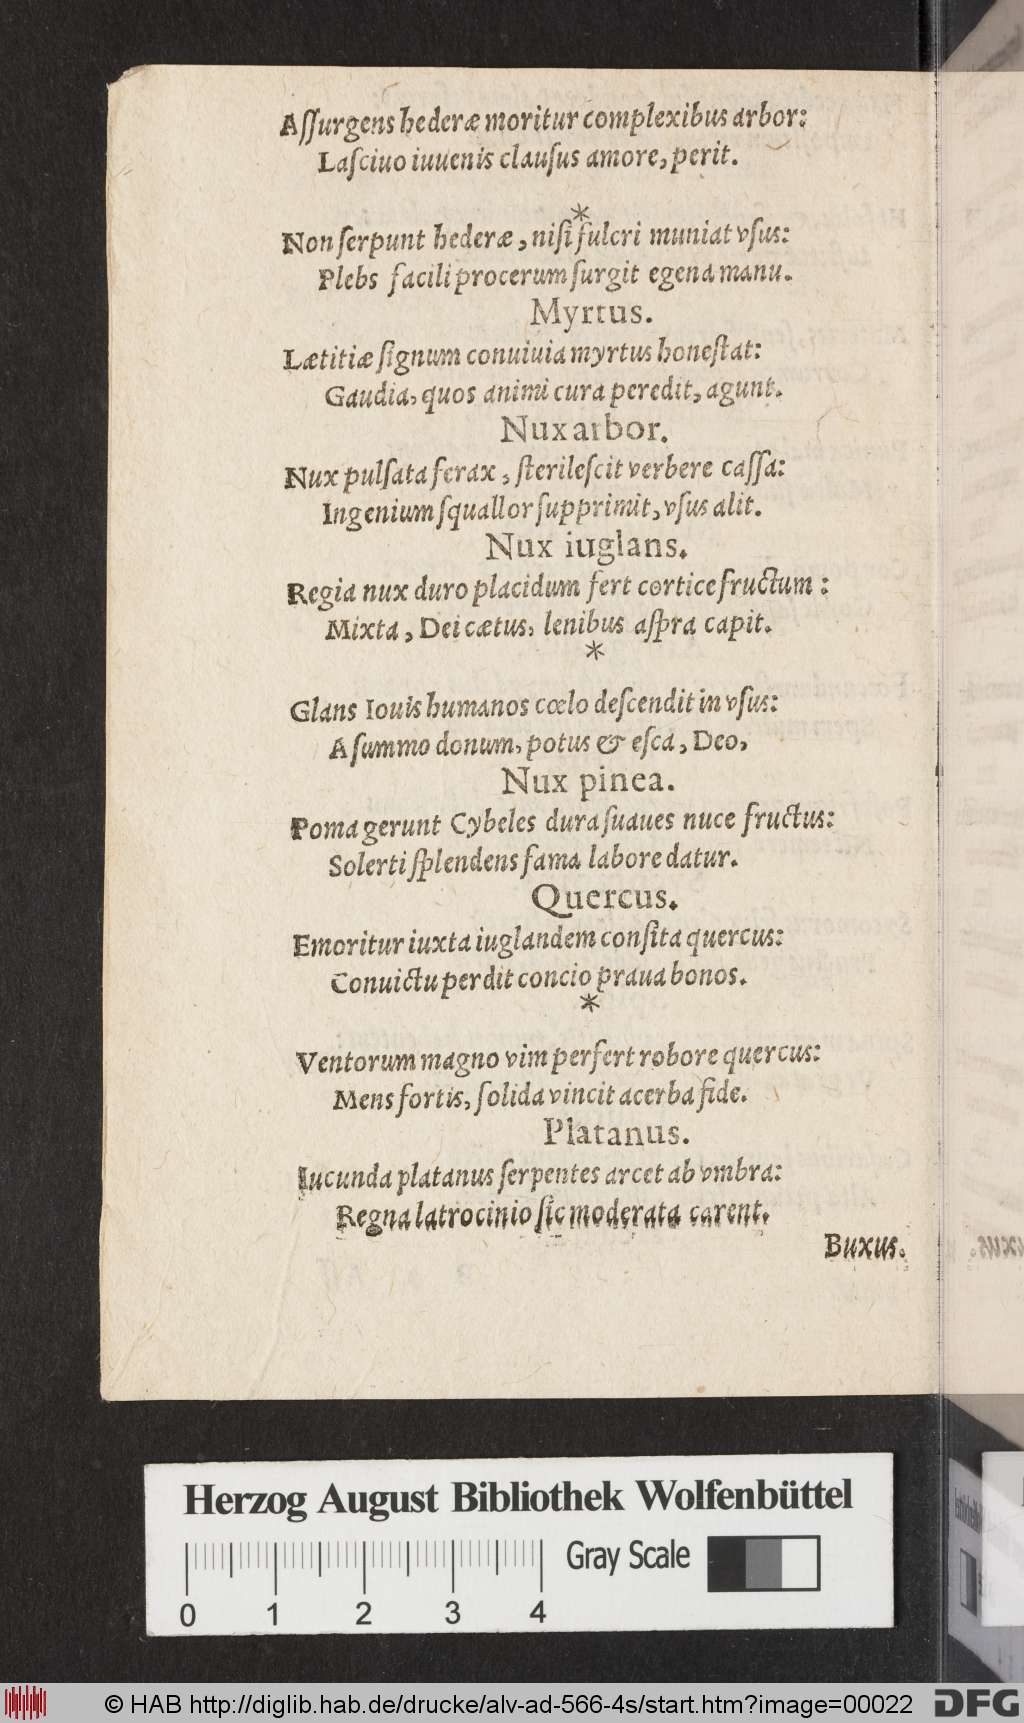 Aſſurgens hederæ moritur complexibus arbor:
Laſciuo iuuenis clauſus amore, perit.
*
Non ſerpunt hederæ, niſi fulcri muniat vſus:
Plebs facili procerum ſurgit egena manu.
Myrtus.
Lætitiæ ſignum conuiuia myrtus honeſtat:
Gaudia, quos animi cura peredit, agunt.
Nux arbor.
Nux pulſata ferax, ſterileſcit verbere caſſa:
Ingenium ſquallor ſupprimit, vſus alit.
Nux iuglans.
Regia nux duro placidum fert cortice fructum:
Mixta, Dei cætus, lenibus aſpra capit.
*
Glans Iouis humanos cœlo deſcendit in vſus:
A ſummo donum, potus & eſca, Deo,
Nux pinea.
Poma gerunt Cybeles dura ſuaues nuce fructus:
Solerti ſplendens fama labore datur.
Quercus.
Emoritur iuxta iuglandem conſita quercus:
Conuictu perdit concio praua bonos.
*
Ventorum magno vim perfert robore quercus:
Mens fortis, ſolida vincit acerba fide.
Platanus.
Iucunda platanus ſerpentes arcet ab vmbra:
Regna latrocinio ſic moderata carent.
Buxus.
Herzog August Bibliothek Wolfenbüttel
Gray Scale
0 1 2 3 4
© HAB http://diglib.hab.de/drucke/alv-ad-566-4s/start.htm?image=00022
DFG